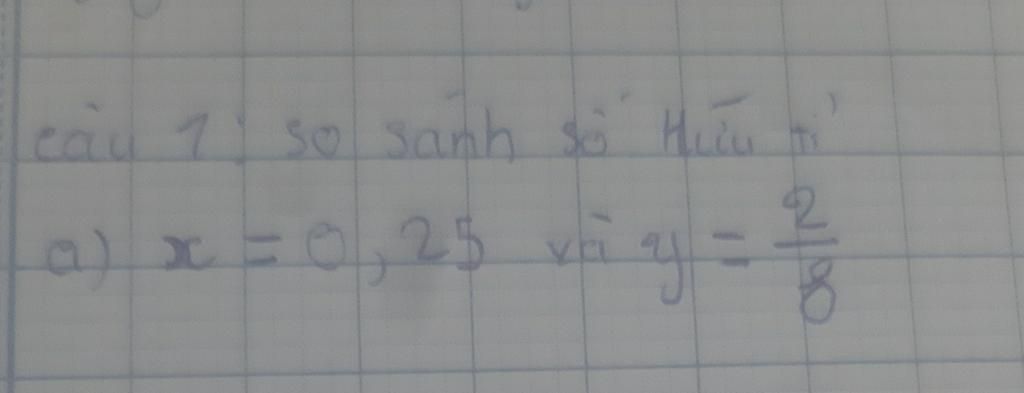 câu 1: so sánh số Hữu tỉ
a) x = 0,25 và y = 2/8